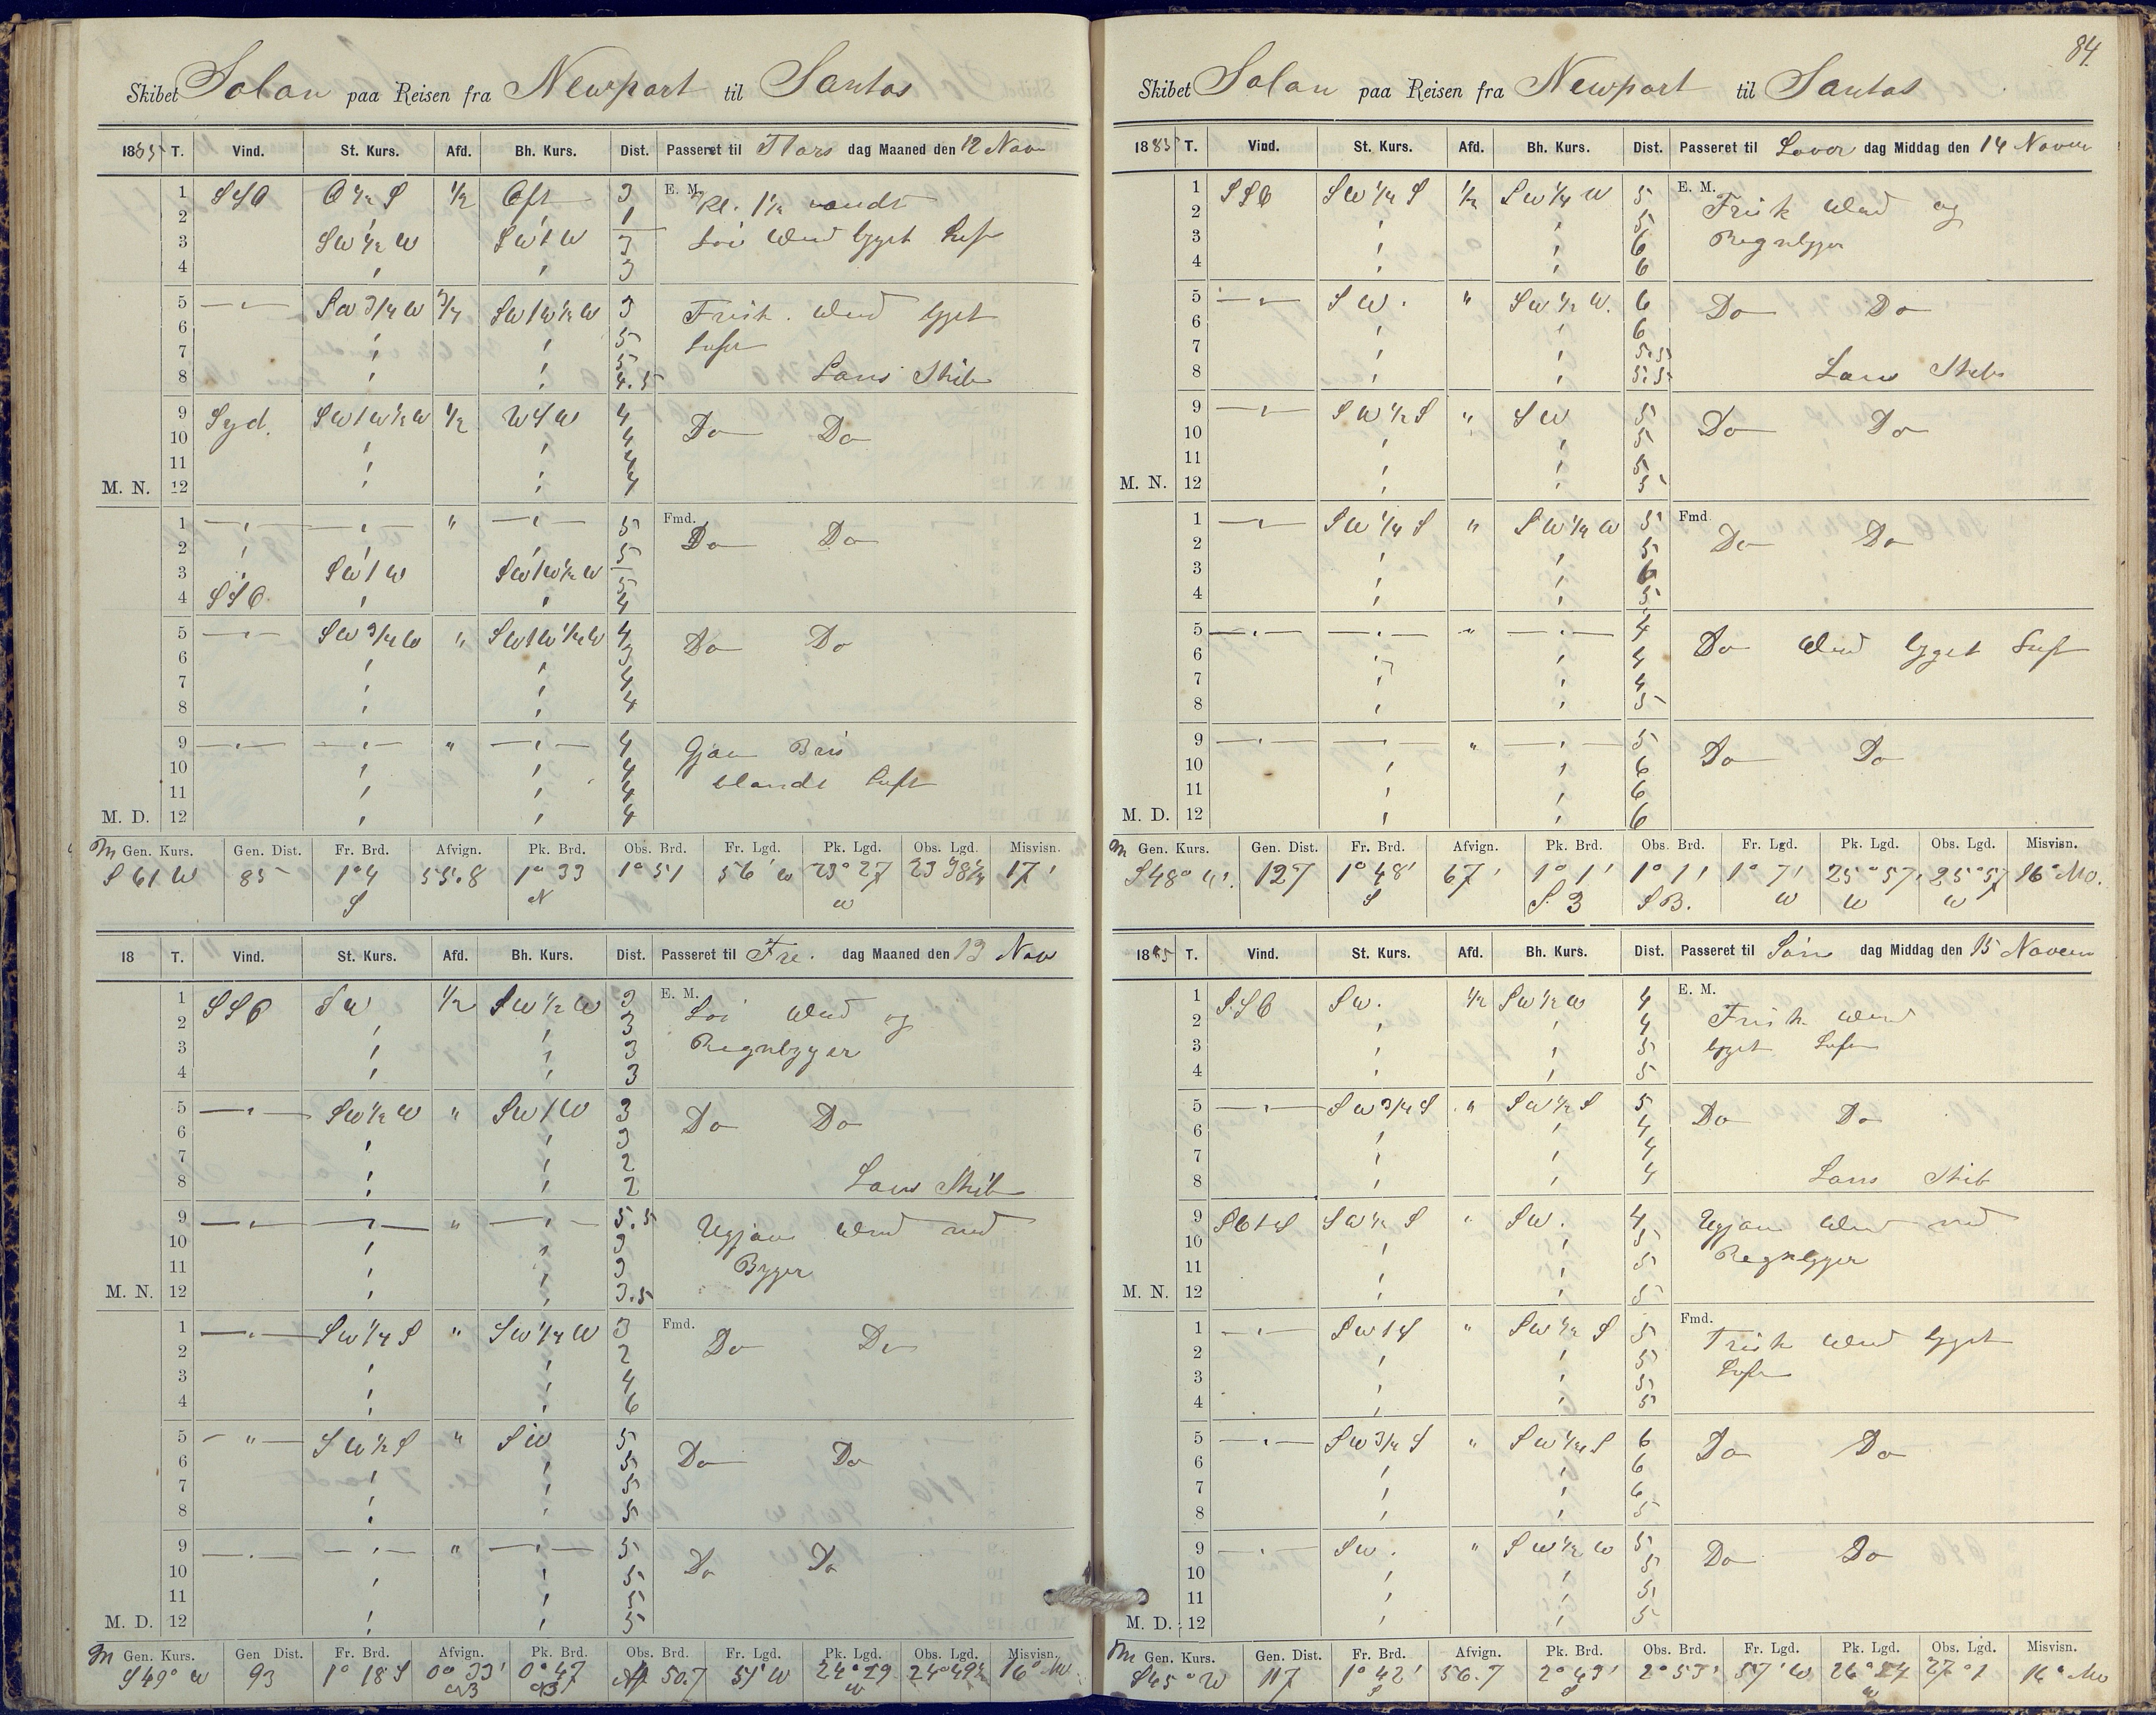 Skibet Solon paa Reisen fra Newport til Santos
1885 T. Vind. St. Kurs. Afd. Bh. Kurs. Dist. Passeret til Tors dag Maaned den 12 Nov
1 SSO O ½ S ½ Oft 3 E. M. Kl. 1½ vendt
2 1
3 SW ½ W SW 1 W 3 Loi Wind bygget Luft
4 3
5 SW ¾ W ¾ SW 1 W ½ W 3 Frisk Wind bygget
6 5 Luft
7 5
8 4.5 Lans Skib
9 Syd. SW 1 W ½ W ½ WSW 4 Do Do
10 4
11 4
M. N. 12 4
1 " 5 Fmd. Do Do
2 5
3 SW 1 W SW 1 W ½ W 5
4 SSO 4
5 SW ¾ W " SW 1 W ¼ W 4 Do Do
6 3
7 4
8 4
9 " 4 Gjen Bris
10 4 blandt Luft
11 4
M. D. 12 4
Gen. Kurs. Gen. Dist. Fr. Brd. Afvign. Pk. Brd. Obs. Brd. Fr. Lgd. Pk. Lgd. Obs. Lgd. Misvisn.
S 61 W 85 1° 4 55.8 1° 33 1° 51 56' W 23° 27 17'
S N W
18 T. Vind. St. Kurs. Afd. Bh. Kurs. Dist. Passeret til Fre. dag Maaned den 13 Nov
1 SSO SW ½ SW ½ W 3 E. M. Loi Wind og
2 3 Regnbyger
3 3
4 3
5 SW ½ W " SW 1 W 3 Do Do
6 3
7 2
8 2 Lans Skib
9 " 5.5 Ugjen Wind med
10 3 Byger
11 3
M. N. 12 3.5
1 SW ¼ S " SW ¼ W 3 Fmd. Do Do
2 2
3 4
4 6
5 " SW ½ S " SW 5 Do Do
6 5
7 5
8 5
9 " 5 Do Do
10 5
11 5
M. D. 12 5
Gen. Kurs. Gen Dist. Fr. Brd. Afvign. Pk. Brd. Obs. Brd. Fr. Lgd. Pk. Lgd. Obs. Lgd. Misvisn.
S 49° W 93 1° 18 S 0° 33' 0° 47 50.7 51' W 24° 29 16°
W
84.
Skibet Solon paa Reisen fra Newport til Santos
1885 T. Vind. St. Kurs. Afd. Bh. Kurs. Dist. Passeret til Lover dag Middag den 14 Novem
1 SSO SW ¼ S ½ SW ¼ W 5 E. M. Frisk Wind og
2 5 Regnbyger
3 6
4 6
5 SW. " SW ½ W. 6 Do Do
6 6
7 5.5
8 5.5 Lans Skib
9 SW ½ S " SW 5 Do Do
10 5
11 5
M. N. 12 5
1 SW ¼ S " SW ¼ W 5 Fmd. Do Do
2 5
3 6
4 5
5 " 4 Do Wind bygget Luft
6 4
7 4
8 5
9 " 5 Do Do
10 6
11 6
M. D. 12 6
Gen. Kurs. Gen. Dist. Fr. Brd. Afvign. Pk. Brd. Obs. Brd. Fr. Lgd. Pk. Lgd. Obs. Lgd. Misvisn.
S 48° W. 127 1° 48' 67' 1° 1' 1° 1' 1° 7' 25° 57' 25° 57 16°
S S. B S B. W W W
1885 T. Vind. St. Kurs. Afd. Bh. Kurs. Dist. Passeret til Søn dag Middag den 15 Novem
1 SSO SW. ½ SW ½ W 4 E. M. Frisk Wind
2 4 bygget Luft
3 5
4 5
5 SW ¾ S " SW ½ S 5 Do Do
6 4
7 4
8 4 Lans Skib
9 SO 1 S SW ½ S " SW. 4 Ugjen Wind med
10 5 Regnbyger
11 5
M. N. 12 5
1 SW 1 S " SW ½ S 5 Fmd. Frisk Wind bygget
2 5 Luft
3 5
4 5
5 SW ¾ S " SW ¼ S 6 Do Do
6 6
7 6
8 5
9 SW. " SW ½ W 5 Do Do
10 5
11 5
M. D. 12 5
Gen. Kurs. Gen. Dist. Fr. Brd. Afvign. Pk. Brd. Obs. Brd. Fr. Lgd. Pk. Lgd. Obs. Lgd. Misvisn.
S 45° W 117 1° 42' 56.7 2° 43' 2° 53' 57' W 26° 54 27° 1 16°
S S W